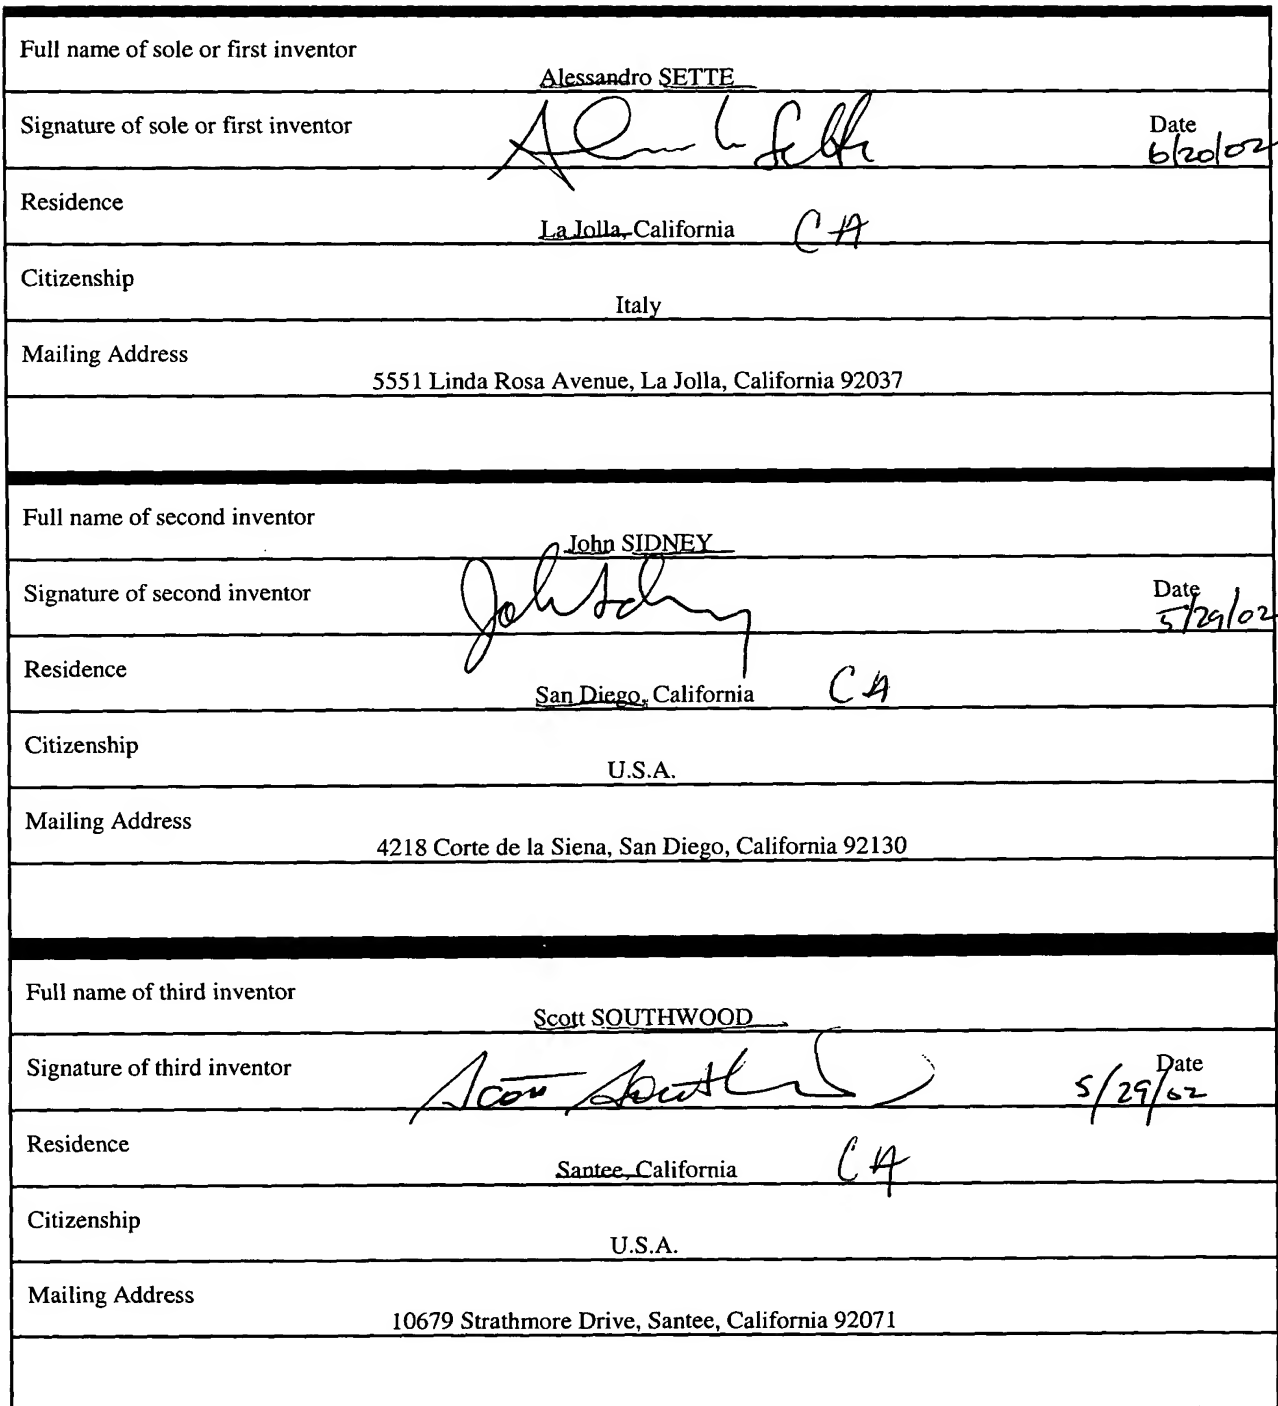 Full name of sole or first inventor
Alessandro SETTE
Signature of sole or first inventor
Date
6/20/02
Residence
La Jolla, California CA
Citizenship
Italy
Mailing Address
5551 Linda Rosa Avenue, La Jolla, California 92037
Full name of second inventor
John SIDNEY
Signature of second inventor John Sidney Date
5/29/02
Residence
San Diego, California CA
Citizenship
U.S.A.
Mailing Address
4218 Corte de la Siena, San Diego, California 92130
Full name of third inventor
Scott SOUTHWOOD
Signature of third inventor Scott Southwood Date
5/29/02
Residence
Santee, California CA
Citizenship
U.S.A.
Mailing Address
10679 Strathmore Drive, Santee, California 92071